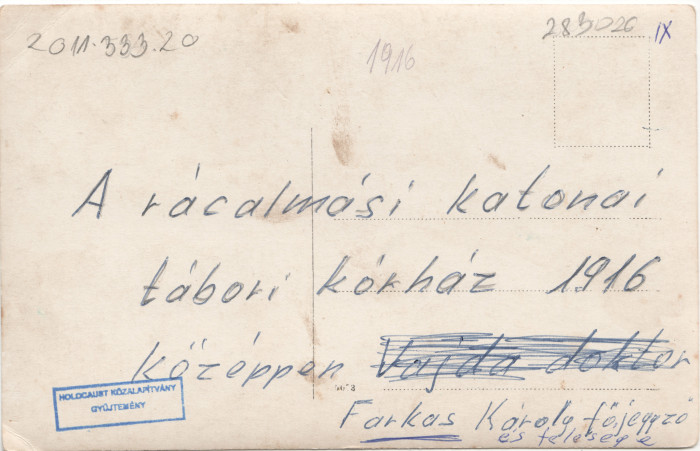 2011.333.20
1916
283026 IX
A rácalmási katonai
tábori kórház 1916
Középpen Vajda doktor
HOLOCAUST KÖZALAPÍTVÁNY
GYŰJTEMÉNY
Farkas Károly főjegyző
és felesége